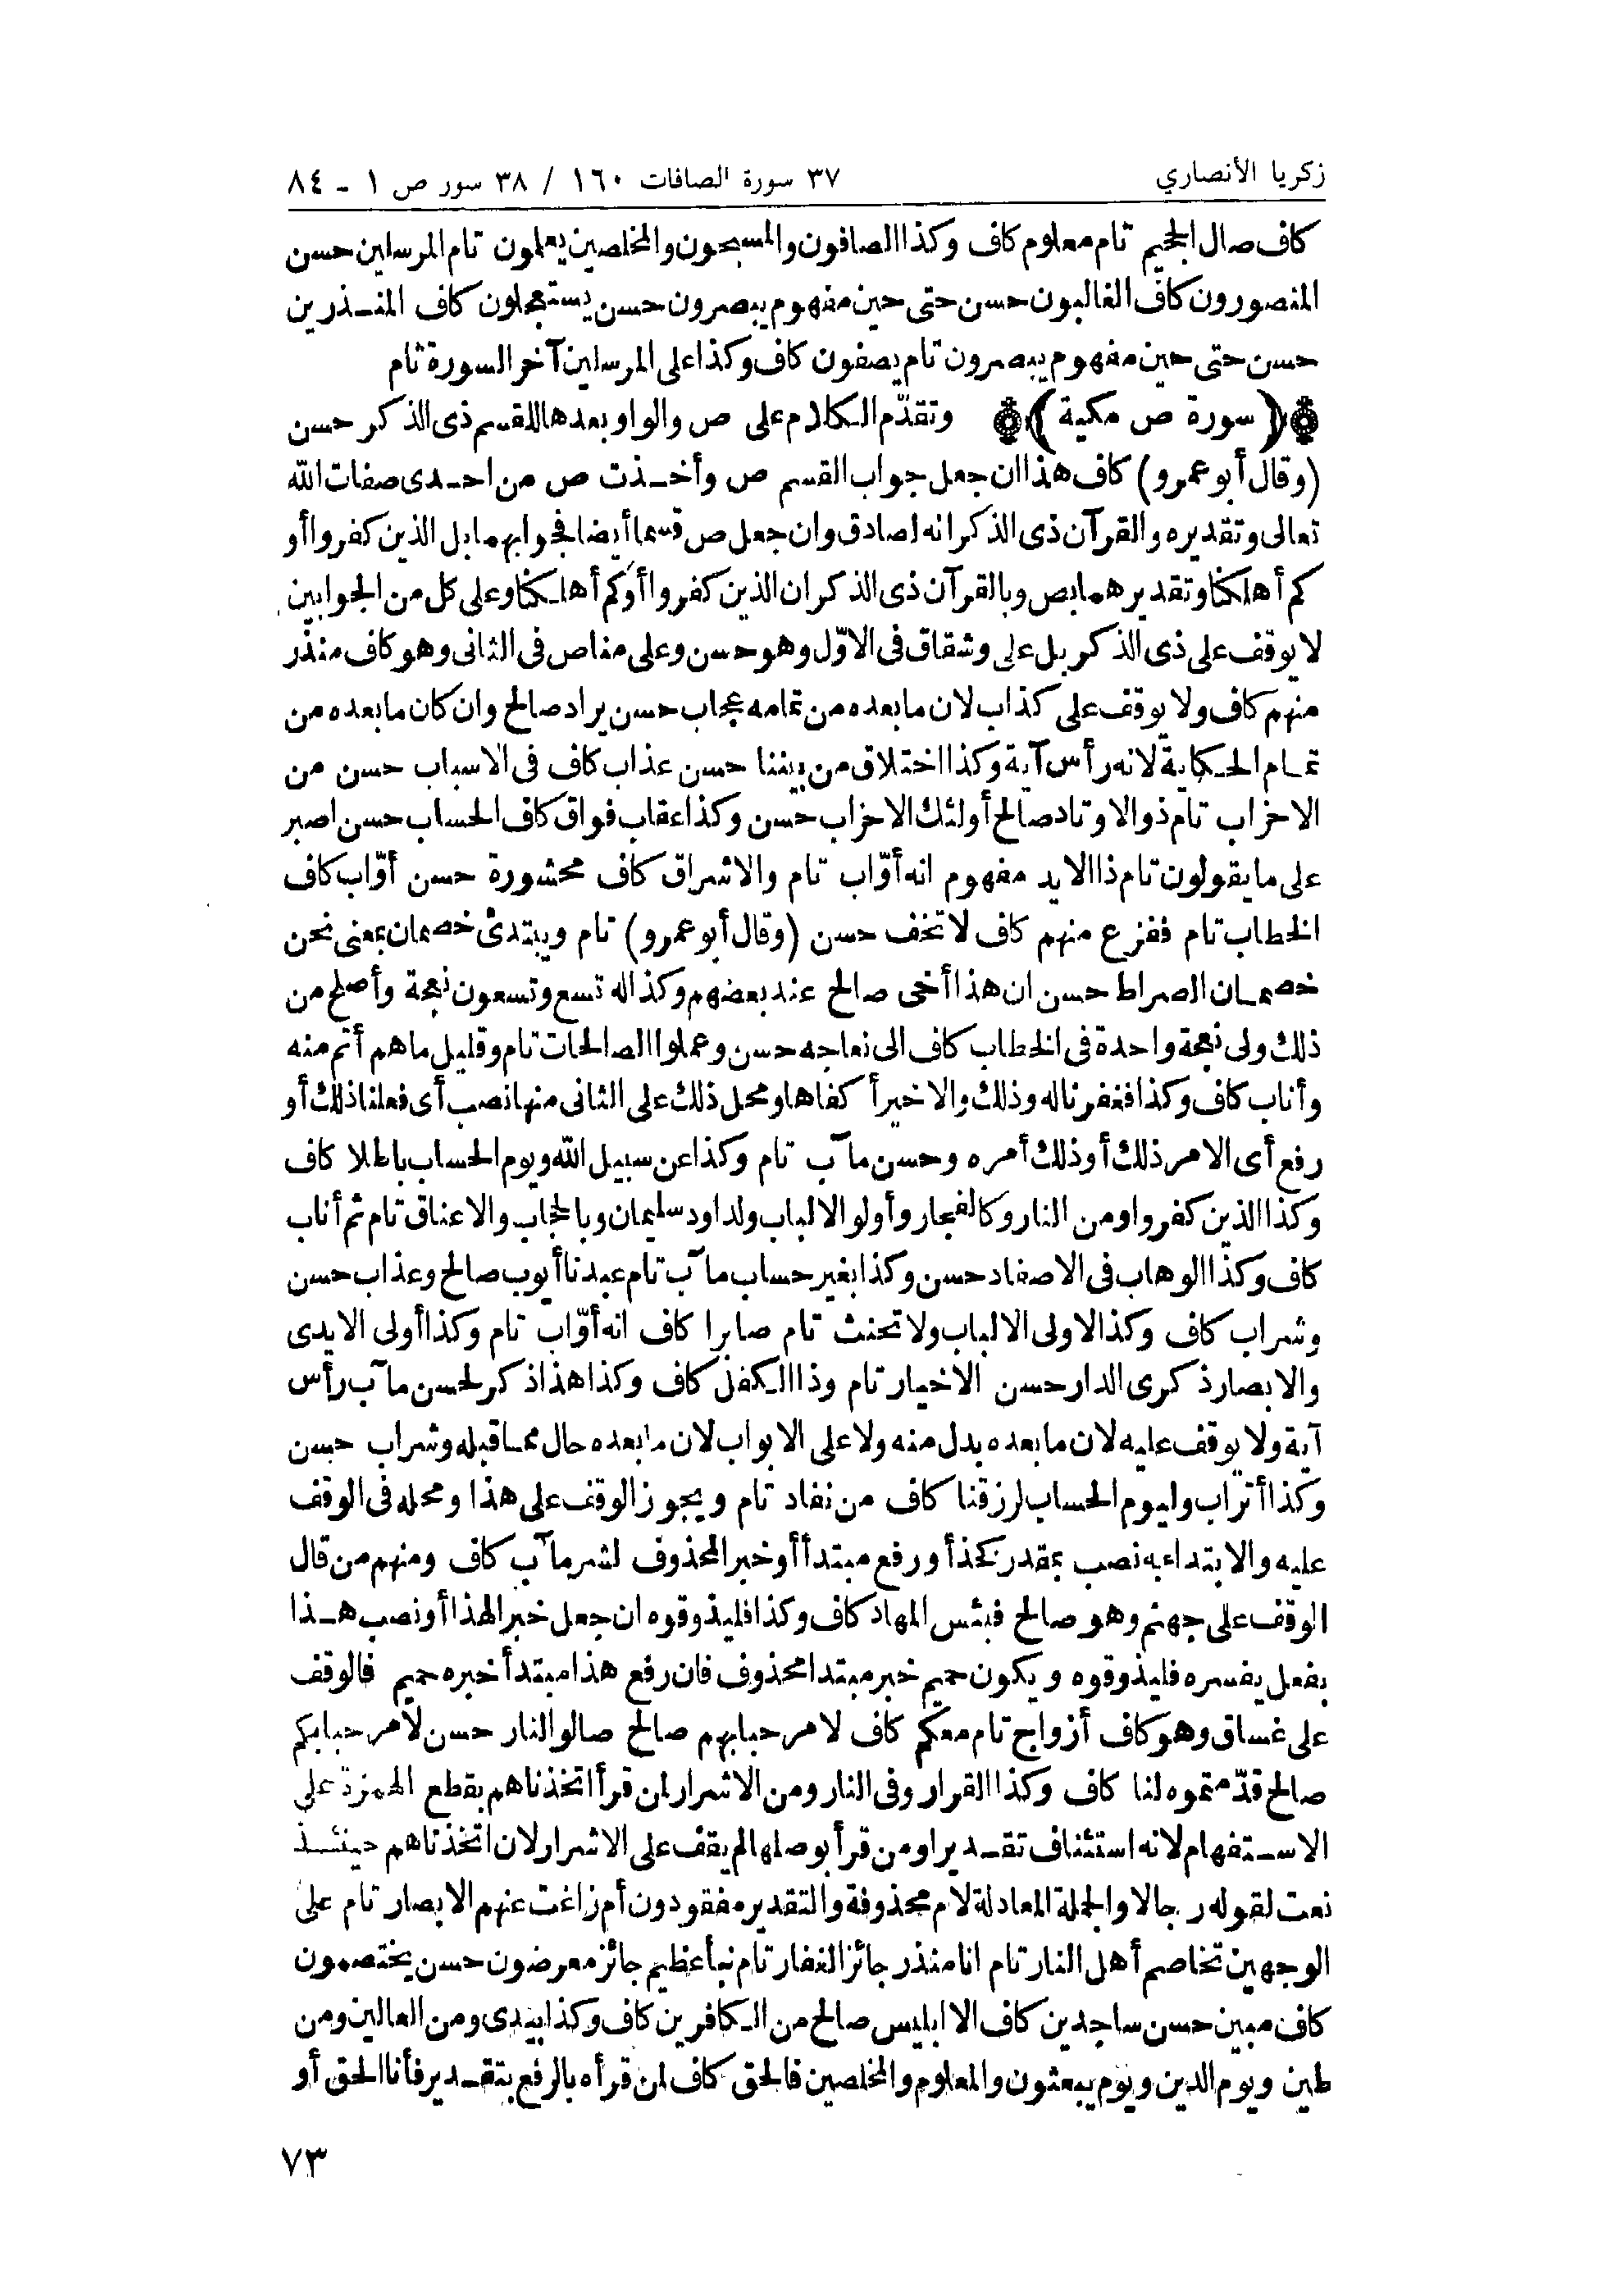 زكريا الأنصاري
٣٧ سورة الصافات ١٦٠ / ٣٨ سور ص ١ - ٨٤
كاف صال الجحيم تام معلوم كاف وكذا الصافون والمسبحون والمخلصين يعلمون تام المرسلين حسن
المنصورون كاف الغالبون حسن حتى حين مفهوم يبصرون حسن يستعجلون كاف المنذرين
حسن حتى حين مفهوم يبصرون تام يصفون كاف وكذا على المرسلين آخر السورة تام
(سورة ص مكية) وتقدّم الكلام على ص والواو بعدها للقسم ذى الذكر حسن
(وقال أبو عمرو) كاف هذا ان جعل جواب القسم ص وأخذت ص من احدى صفات الله
تعالى وتقديره والقرآن ذى الذكر انه لصادق وان جعل ص قسما أيضا فجوابهما بل الذين كفروا أو
كم أهلكنا وتقديرهما بص وبالقرآن ذى الذكر ان الذين كفروا أو كم أهلكنا وعلى كل من الجوابين
لا يوقف على ذى الذكر بل على وشقاق فى الاوّل وهو حسن وعلى مناص فى الثانى وهو كاف منذر
منهم كاف ولا يوقف على كذاب لان ما بعده من تمامه عجاب حسن يراد صالح وان كان ما بعده من
تمام الحكاية لانه رأس آية وكذا اختلاق من بيننا حسن عذاب كاف فى الاسباب حسن من
الاحزاب تام ذو الاوتاد صالح أولئك الاحزاب حسن وكذا عقاب فواق كاف الحساب حسن اصبر
على ما يقولون تام ذا الايد مفهوم انه أوّاب تام والاشراق كاف محشورة حسن أوّاب كاف
الخطاب تام ففزع منهم كاف لا تخف حسن (وقال أبو عمرو) تام ويبتدئ خصمان بمعنى نحن
خصمان الصراط حسن ان هذا أخى صالح عند بعضهم وكذا له تسع وتسعون نعجة وأصلح من
ذلك ولى نعجة واحدة فى الخطاب كاف الى نعاجه حسن وعملوا الصالحات تام وقليل ما هم أتم منه
وأناب كاف وكذا فغفرنا له وذلك والاخير أكفاها ومحل ذلك على الثانى منها نصب أى فعلنا ذلك أو
رفع أى الامر ذلك أو ذلك أمره وحسن مآب تام وكذا عن سبيل الله ويوم الحساب باطلا كاف
وكذا الذين كفروا ومن النار وكالفجار وأولو الالباب ولداود سليمان وبالحجاب والاعناق تام ثم أناب
كاف وكذا الوهاب فى الاصفاد حسن وكذا بغير حساب مآب تام عبدنا أيوب صالح وعذاب حسن
وشراب كاف وكذا لاولى الالباب ولا تحنث تام صابرا كاف انه أوّاب تام وكذا أولى الايدى
والابصار ذكرى الدار حسن الاخيار تام وذا الكفل كاف وكذا هذا ذكر لحسن مآب رأس
آية ولا يوقف عليه لان ما بعده بدل منه ولا على الابواب لان ما بعده حال مما قبله وشراب حسن
وكذا أتراب وليوم الحساب لرزقنا كاف من نفاد تام ويجوز الوقف على هذا ومحله فى الوقف
عليه والابتداء به نصب بمقدر كخذ أو رفع مبتدأ أو خبر المحذوف لشر مآب كاف ومنهم من قال
الوقف على جهنم وهو صالح فبئس المهاد كاف وكذا فليذوقوه ان جعل خبر الهذا أو نصب هذا
بفعل يفسره فليذوقوه ويكون حميم خبر مبتدا محذوف فان رفع هذا مبتدأ خبره حميم فالوقف
على غساق وهو كاف أزواج تام معكم كاف لا مرحبا بهم صالح صالو النار حسن لا مرحبا بكم
صالح قدّمتموه لنا كاف وكذا القرار وفى النار ومن الاشرار لمن قرأ اتخذناهم بقطع الهمزة على
الاستفهام لانه استئناف تقديرا ومن قرأ بوصلها لم يقف على الاشرار لان اتخذناهم حينئذ
نعت لقوله رجالا والجملة المعادلة لام محذوفة والتقدير مفقودون أم زاغت عنهم الابصار تام على
الوجهين تخاصم أهل النار تام انا منذر جائز الغفار تام نبأ عظيم جائز معرضون حسن يختصمون
كاف مبين حسن ساجدين كاف الا ابليس صالح من الكافرين كاف وكذا بيدى ومن العالين ومن
طين ويوم الدين ويوم يبعثون والمعلوم والمخلصين فالحق كاف لمن قرأه بالرفع بتقدير فأنا الحق أو
٧٣